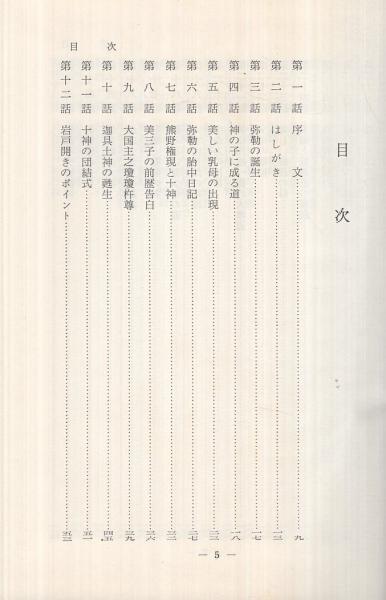 目次
第一話 序文……九
第二話 はしがき……一三
第三話 弥勒の誕生……一七
第四話 神の子に成る道……一八
第五話 美しい乳母の出現……二三
第六話 弥勒の胎中日記……二七
第七話 熊野権現と十神……三三
第八話 美三子の前歴告白……三六
第九話 大国主之瓊瓊杵尊……三九
第十話 迦具土神の甦生……四五
第十一話 十神の団結式……五一
第十二話 岩戸開きのポイント……五三
目次
— 5 —